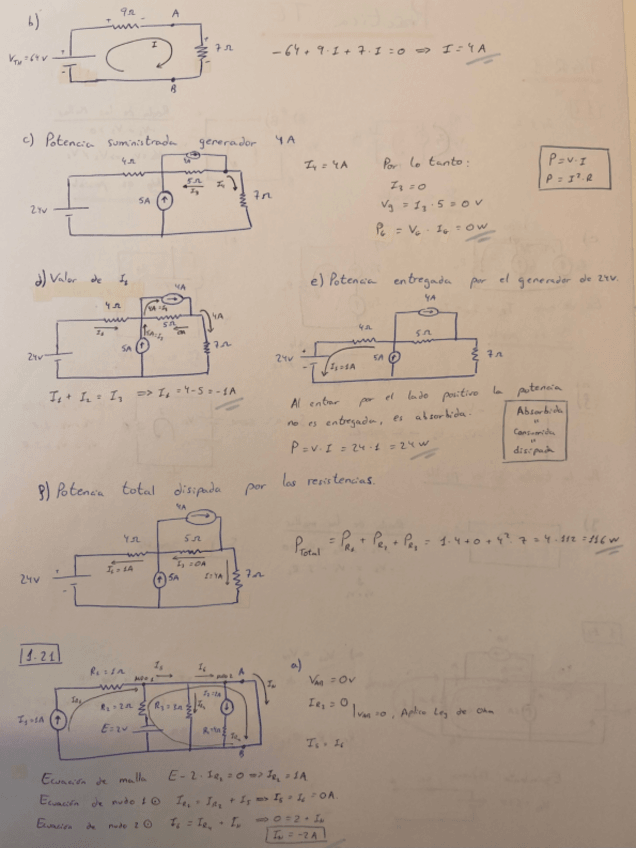 b)
9Ω
A
V_TH = 64V
I
7Ω
B
-64 + 9·I + 7·I = 0 ⇒ I = 4A
c) Potencia suministrada generador 4A
4Ω
5Ω
I₃
5A
7Ω
24V
I₄ = 4A
Por lo tanto:
I₃ = 0
V₉ = I₃·5 = 0V
P_G = V_G · I_G = 0W
P = V·I
P = I²·R
d) Valor de I₁
4A
4Ω
5Ω
4A
I₁
0A
5A
7Ω
24V
I₁ + I₂ = I₃ ⇒ I₁ = 4-5 = -1A
e) Potencia entregada por el generador de 24V.
4A
4Ω
5Ω
24V
5A
7Ω
I₁=1A
Al entrar por el lado positivo la potencia
no es entregada, es absorbida.
P = V·I = 24·1 = 24W
Absorbida
"
Consumida
"
disipada
f) Potencia total disipada por las resistencias.
4A
4Ω
5Ω
I₁=1A
I₃=0A
I=4A
5A
7Ω
24V
P_Total = P_R₁ + P_R₂ + P_R₃ = 1·4+0+4²·7 = 4·112 = 116W
1.21
R₁=1Ω
A
R₂=2Ω
R₃=2Ω
E=2V
B
a)
V_AB = 0V
I_R₃ = 0
V_AB=0, Aplico Ley de Ohm
I₅ = I₆
Ecuación de malla E-2·I_R₂=0 ⇒ I_R₂=1A
Ecuación de nudo 1 ⊙ I_R₁ = I_R₂ + I₅ ⇒ I₅=I₆=0A.
Ecuación de nudo 2 ⊙ I₆ = I_R₄ + I_N ⇒ 0=2+I_N
I_N = -2A